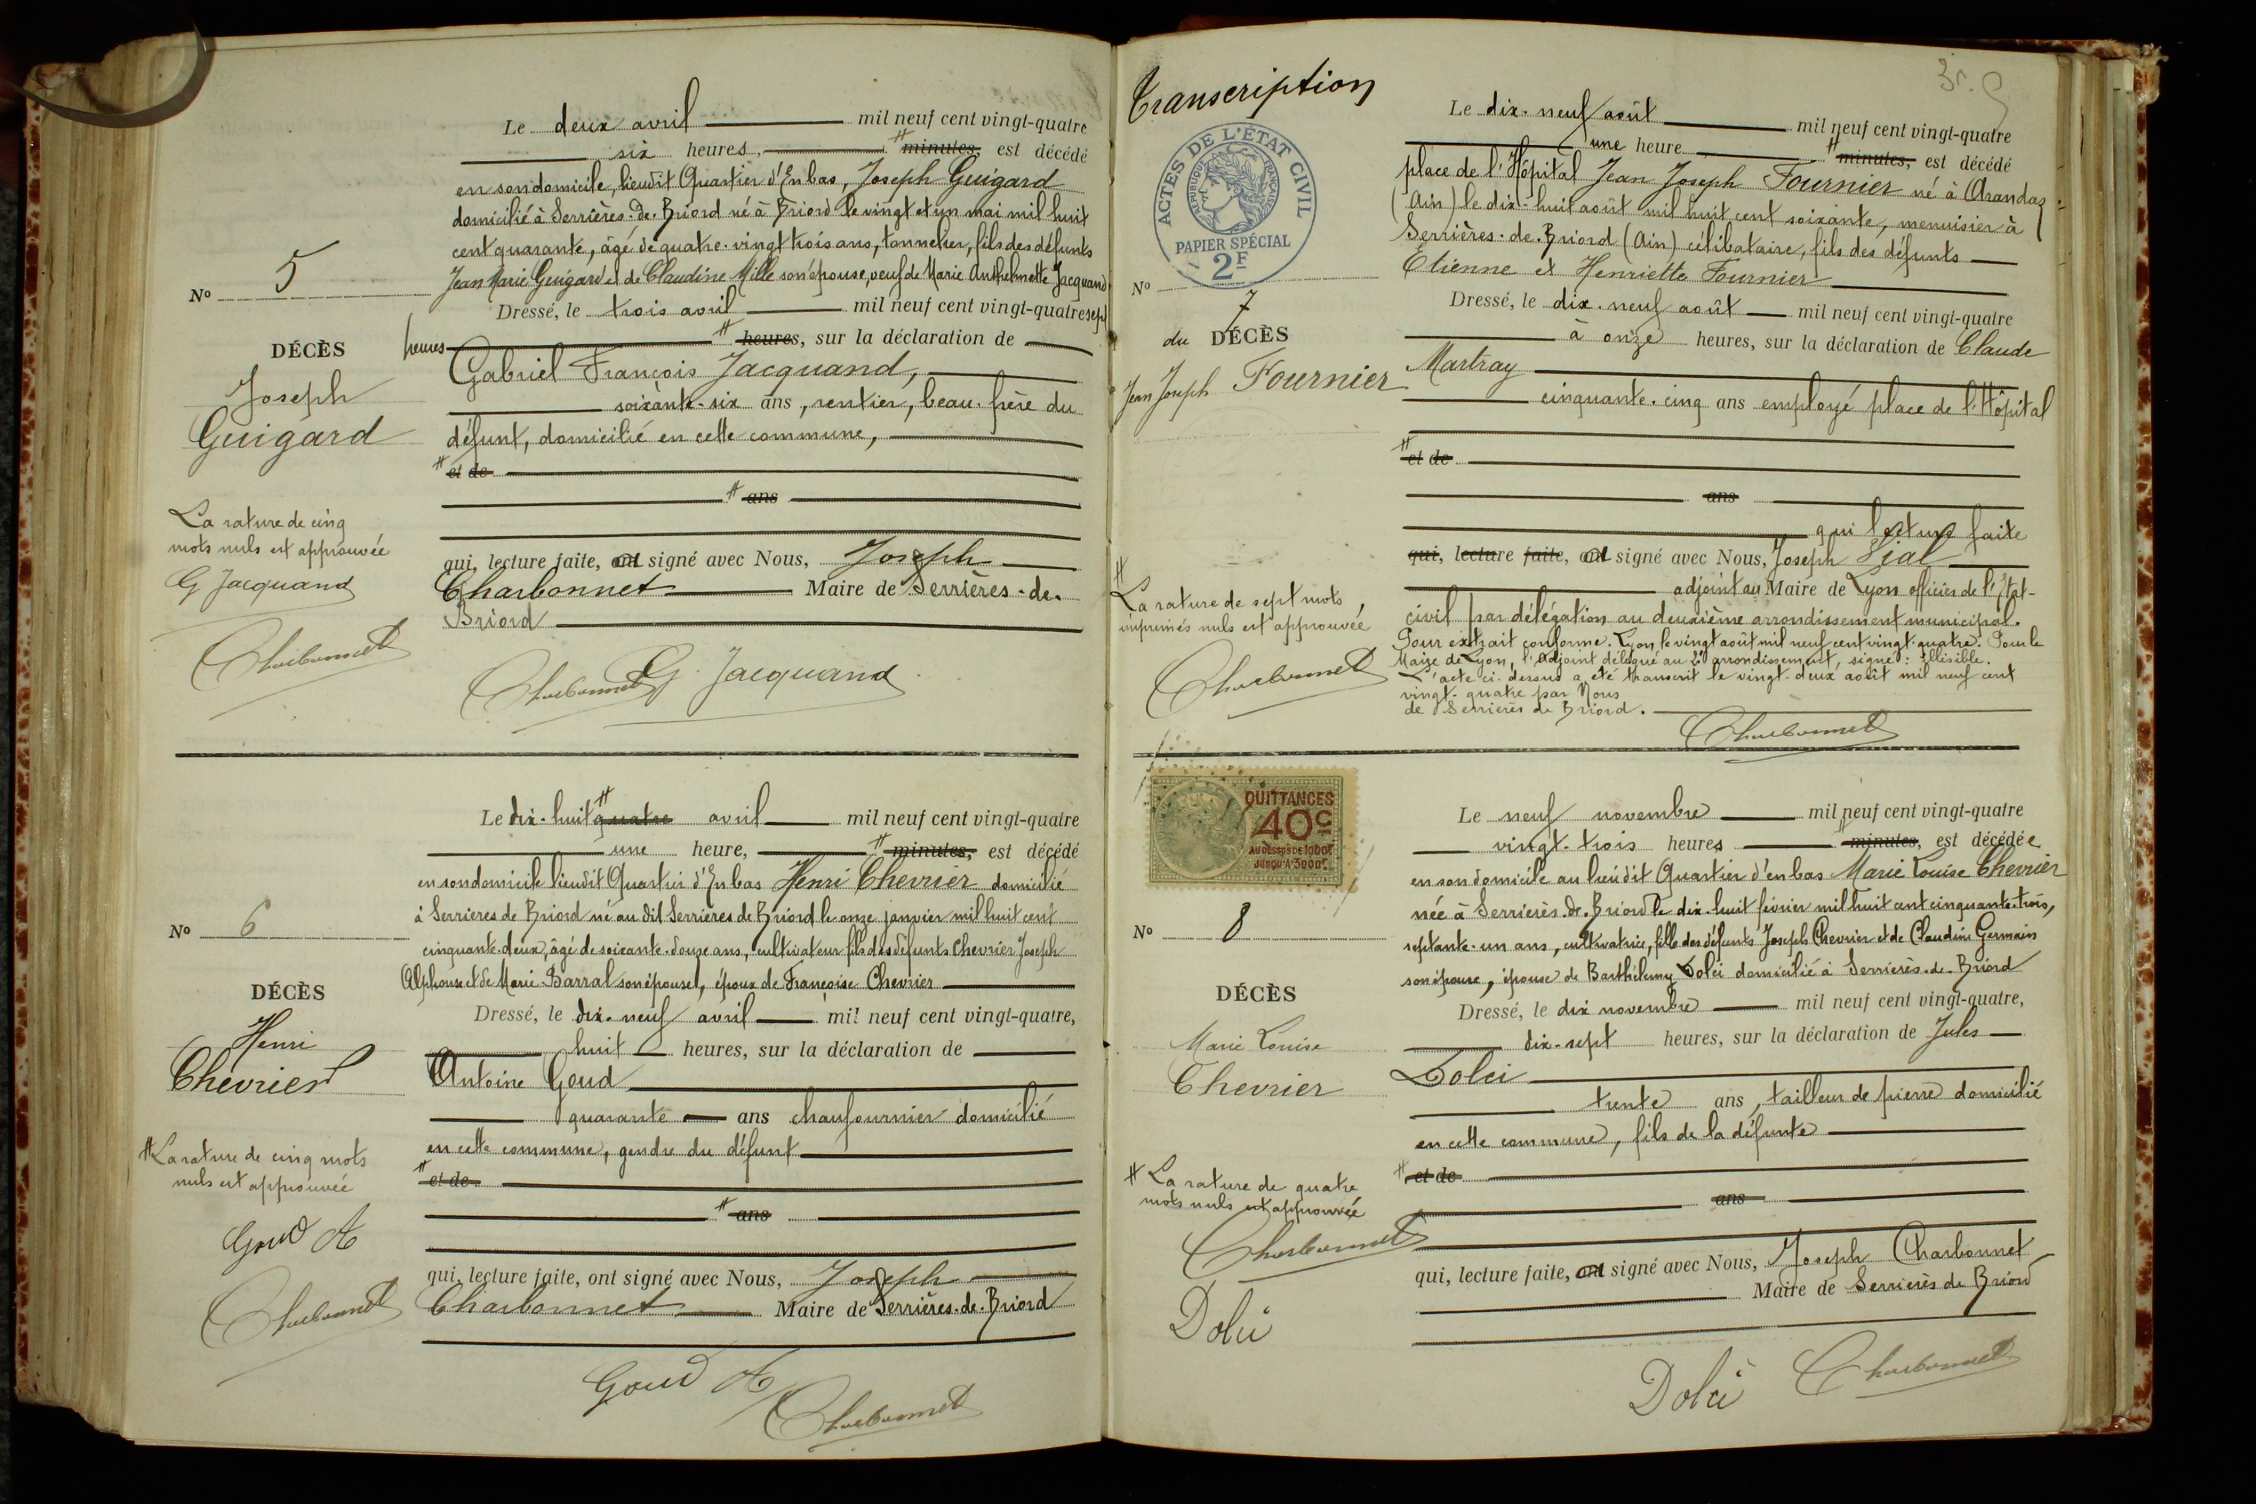 Le deux avril mil neuf cent vingt-quatre
six heures, # minutes, est décédé
en son domicile, lieudit Quartier d'En bas, Joseph Guigard
domicilié à Serrières-de-Briord né à Briord le vingt et un mai mil huit
cent quarante, âgé de quatre-vingt trois ans, tonnelier, fils des défunts
Jean Marie Guigard et de Claudine Mille son épouse, veuf de Marie Anthelmette Jacquand
No 5
Dressé, le trois avril mil neuf cent vingt-quatre sept
heures # heures, sur la déclaration de
DÉCÈS
Joseph
Guigard
Gabriel François Jacquand,
soixante-six ans, rentier, beau-frère du
défunt, domicilié en cette commune,
# et de
# ans
La rature de cinq
mots nuls est approuvée
G Jacquand
Charbonnet
qui, lecture faite, ont signé avec Nous, Joseph
Charbonnet Maire de Serrières-de-
Briord
Charbonnet G. Jacquand
Le dix-huit # quatre avril mil neuf cent vingt-quatre
une heure, # minutes, est décédé
en son domicile lieudit Quartier d'En bas Henri Chevrier domicilié
à Serrieres de Briord né au dit Serrieres de Briord le onze janvier mil huit cent
cinquante-deux, âgé de soixante-douze ans, cultivateur fils des défunts Chevrier Joseph
Alphonse et de Marie Barral son épouse, époux de Françoise Chevrier
No 6
Dressé, le dix-neuf avril mil neuf cent vingt-quatre,
huit heures, sur la déclaration de
DÉCÈS
Henri
Chevrier
Antoine Goud
quarante ans chaufournier domicilié
en cette commune, gendre du défunt
# et de
# ans
# La rature de cinq mots
nuls est approuvée
Goud A
Charbonnet
qui, lecture faite, ont signé avec Nous, Joseph
Charbonnet Maire de Serrières-de-Briord
Goud A
Charbonnet
Transcription
ACTES DE L'ÉTAT CIVIL
RÉPUBLIQUE FRANÇAISE
PAPIER SPÉCIAL
2F
Le dix-neuf août mil neuf cent vingt-quatre
une heure # minutes, est décédé
place de l'Hôpital Jean Joseph Fournier né à Arandas
(Ain) le dix-huit août mil huit cent soixante, menuisier à
Serrières-de-Briord (Ain) célibataire, fils des défunts
Etienne et Henriette Fournier
No 7
Dressé, le dix-neuf août mil neuf cent vingt-quatre
à onze heures, sur la déclaration de Claude
du DÉCÈS
Jean Joseph Fournier
Martray
cinquante-cinq ans employé place de l'Hôpital
# et de
ans
qui lecture faite
qui, lecture faite, ont signé avec Nous, Joseph Vial
adjoint au Maire de Lyon officier de l'Etat-
civil par délégation au deuxième arrondissement municipal.
Pour extrait conforme. Lyon le vingt août mil neuf cent vingt-quatre. Pour le
Maire de Lyon, l'adjoint délégué au 2e arrondissement, signé : Illisible.
L'acte ci-dessus a été transcrit le vingt-deux août mil neuf cent
vingt-quatre par Nous
de Serrieres de Briord.
# La rature de sept mots
imprimés nuls est approuvée
Charbonnet
Charbonnet
QUITTANCES
40c
AU DESSUS DE 1000F
JUSQU'A 3000F
Le neuf novembre mil neuf cent vingt-quatre
vingt-trois heures # minutes, est décédée
en son domicile au lieudit Quartier d'en bas Marie Louise Chevrier
née à Serrieres-de-Briord le dix-huit février mil huit cent cinquante-trois,
septante-un ans, cultivatrice, fille des défunts Joseph Chevrier et de Claudine Germain
son épouse, épouse de Barthélemy Dolci domicilié à Serrieres-de-Briord
No 8
Dressé, le dix novembre mil neuf cent vingt-quatre,
dix-sept heures, sur la déclaration de Jules
DÉCÈS
Marie Louise
Chevrier
Dolci
trente ans, tailleur de pierre domicilié
en cette commune, fils de la défunte
# et de
ans
# La rature de quatre
mots nuls est approuvée
Charbonnet
Dolci
qui, lecture faite, ont signé avec Nous, Joseph Charbonnet
Maire de Serrieres de Briord
Dolci Charbonnet